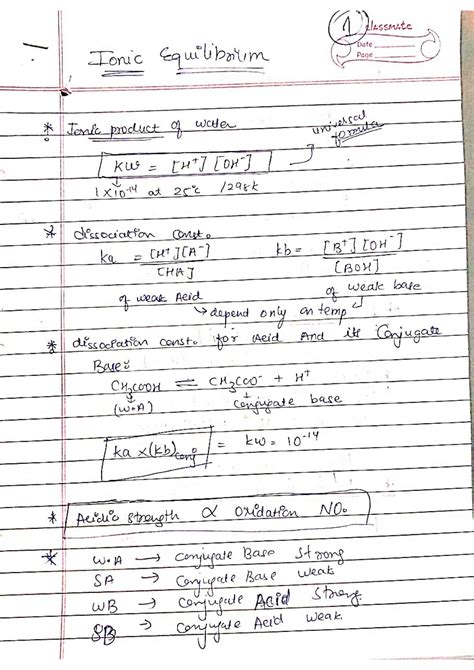 1 classmate
Date
Page
Ionic Equilibrium
* Ionic product of water
universal formula
Kw = [H+] [OH-]
1×10-14 at 25°c /298k
* dissociation const.
ka = [H+][A-] / [HA]
kb = [B+][OH-] / [BOH]
of weak Acid
of weak base
depend only on temp
* dissociation const. for Acid And its Conjugate
Base:
CH3COOH ⇌ CH3COO- + H+
(W.A)
conjugate base
ka × (kb)conj = kw = 10-14
* Acidic strength ∝ Oxidation NO.
* W.A → Conjugate Base Strong
SA → Conjugate Base weak
WB → Conjugate Acid Strong
SB → Conjugate Acid weak.